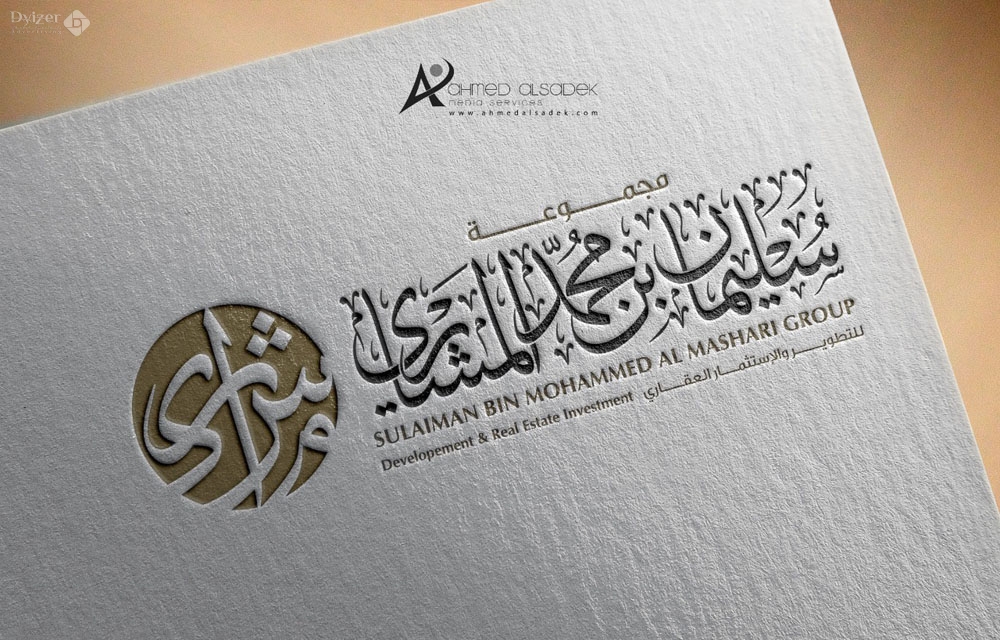 Dyizer
AHMED ALSADEK
media services
www.ahmedalsadek.com
مجموعة
سليمان بن محمد المشاري
SULAIMAN BIN MOHAMMED AL MASHARI GROUP
Developement & Real Estate Investment للتطوير والإستثمار العقاري